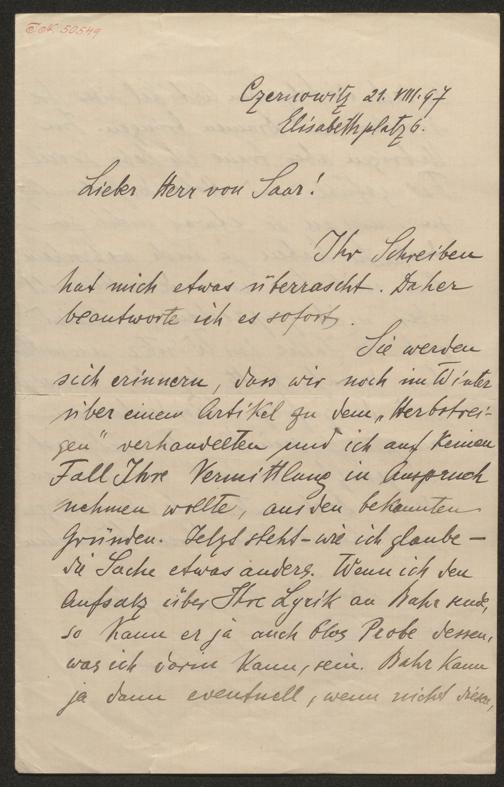 Czernowitz 21. VIII. 97
Elisabethplatz 6.
Lieber Herr von Saar!
Ihr Schreiben
hat mich etwas überrascht. Daher
beantworte ich es sofort.
Sie werden
sich erinnern, dass wir noch im Winter
über einen Artikel zu dem „Herbstrei-
gen" verhandelten und ich auf keinen
Fall Ihre Vermittlung in Anspruch
nehmen wollte, aus den bekannten
Gründen. Jetzt steht – wie ich glaube –
die Sache etwas anders. Wenn ich den
Aufsatz über Ihre Lyrik an Bahr sende,
so kann er ja auch blos Probe dessen,
was ich darin kann, sein. Bahr kann
ja dann eventuell, wenn nicht diesen,